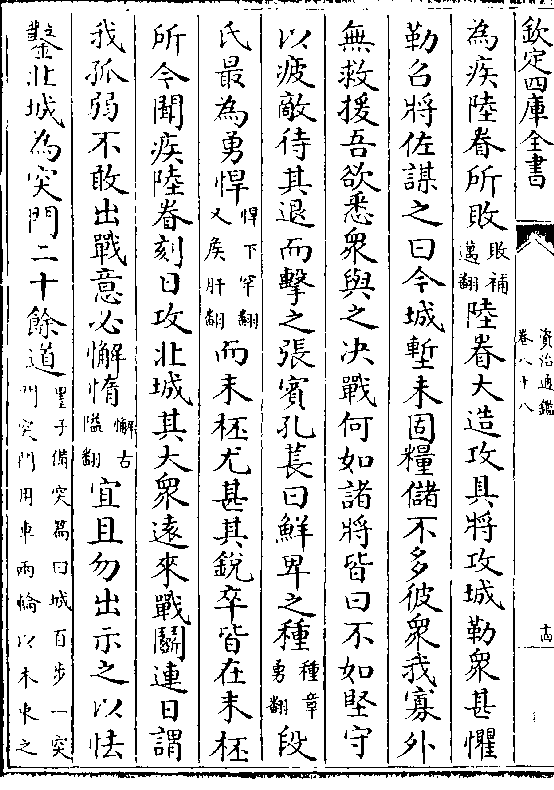 欽定四庫全書
資治通鑑
卷八十八
十四
為疾陸眷所敗敗補邁翻陸眷大造攻具將攻城勒衆甚懼
勒召將佐謀之曰今城塹未固糧儲不多彼衆我寡外
無救援吾欲悉衆與之决戰何如諸將皆曰不如堅守
以疲敵待其退而擊之張賓孔萇曰鮮卑之種種章勇翻段
氏最為勇悍悍下罕翻又矦肝翻而末柸尤甚其銳卒皆在末柸
所今聞疾陸眷刻日攻北城其大衆遠來戰鬬連日謂
我孤弱不敢出戰意必懈惰懈古隘翻宜且勿出示之以怯
鑿北城為突門二十餘道墨子備突篇曰城百步一突門突門用車兩輪以木束之